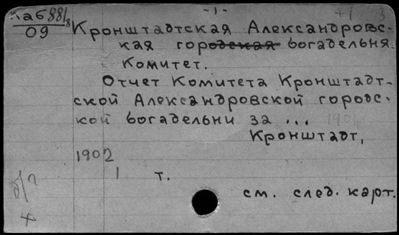 -1-
Каб881/8
09
Кронштадтская Александровс-
кая городская богадельня.
Комитет.
Отчет Комитета Кронштадт-
ской Александровской городс-
кой богадельни за ...
Кронштадт,
1902
1 т.
см. след. карт.